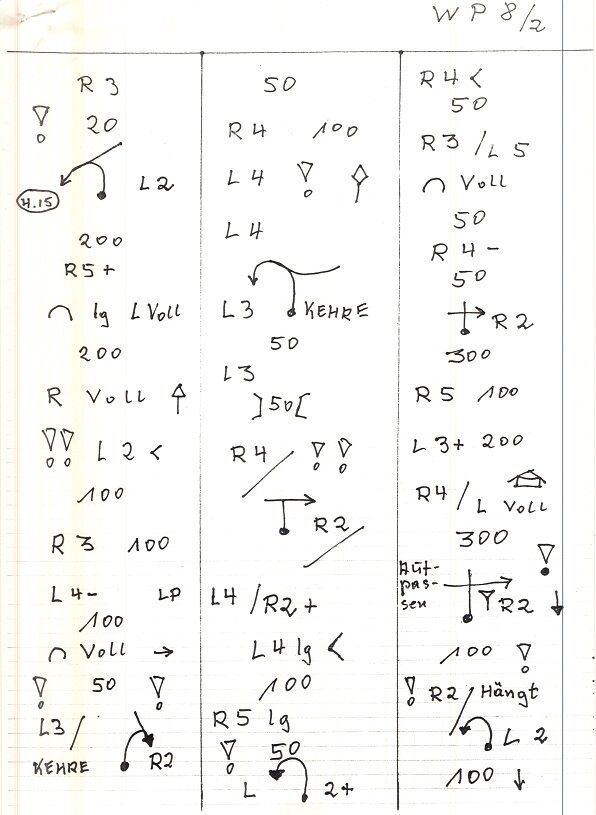 WP 8/2
R 3
! 20
4.15 L2
200
R5+
lg L Voll
200
R Voll
!! L 2 <
100
R 3 100
L 4- LP
100
Voll →
! 50 !
L3 /
KEHRE R2
50
R 4 100
L 4 !
L 4
L3 KEHRE
50
L3
]50[
R4 / !!
R2
L4 /R2+
L4 lg <
100
R5 lg
! 50
L 2+
R4 <
50
R3 /L 5
Voll
50
R4 -
50
R2
300
R5 100
L3+ 200
R4 / L Voll
300
Auf-
pas-
sen R2 ↓ !
100 !
! R2 / Hängt
L 2
100 ↓